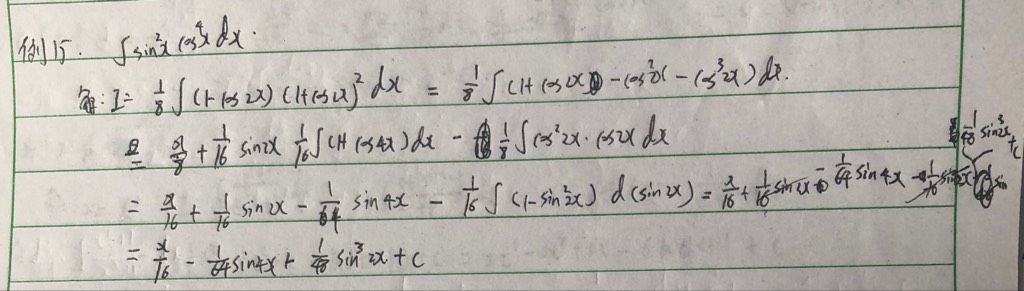 例15. ∫sin²x cos⁴x dx.
解: I = 1/8 ∫(1-cos2x)(1+cos2x)² dx = 1/8 ∫(1+cos2x - cos²2x - cos³2x) dx.
= x/8 + 1/16 sin2x 1/16 ∫(1+cos4x) dx - 1/8 ∫cos²2x·cos2x dx
= x/16 + 1/16 sin2x - 1/64 sin4x - 1/16 ∫(1-sin²2x) d(sin2x) = x/16 + 1/16 sin2x - 1/64 sin4x - 1/16 sin2x + 1/48 sin³2x + c
= x/16 - 1/64 sin4x + 1/48 sin³2x + c